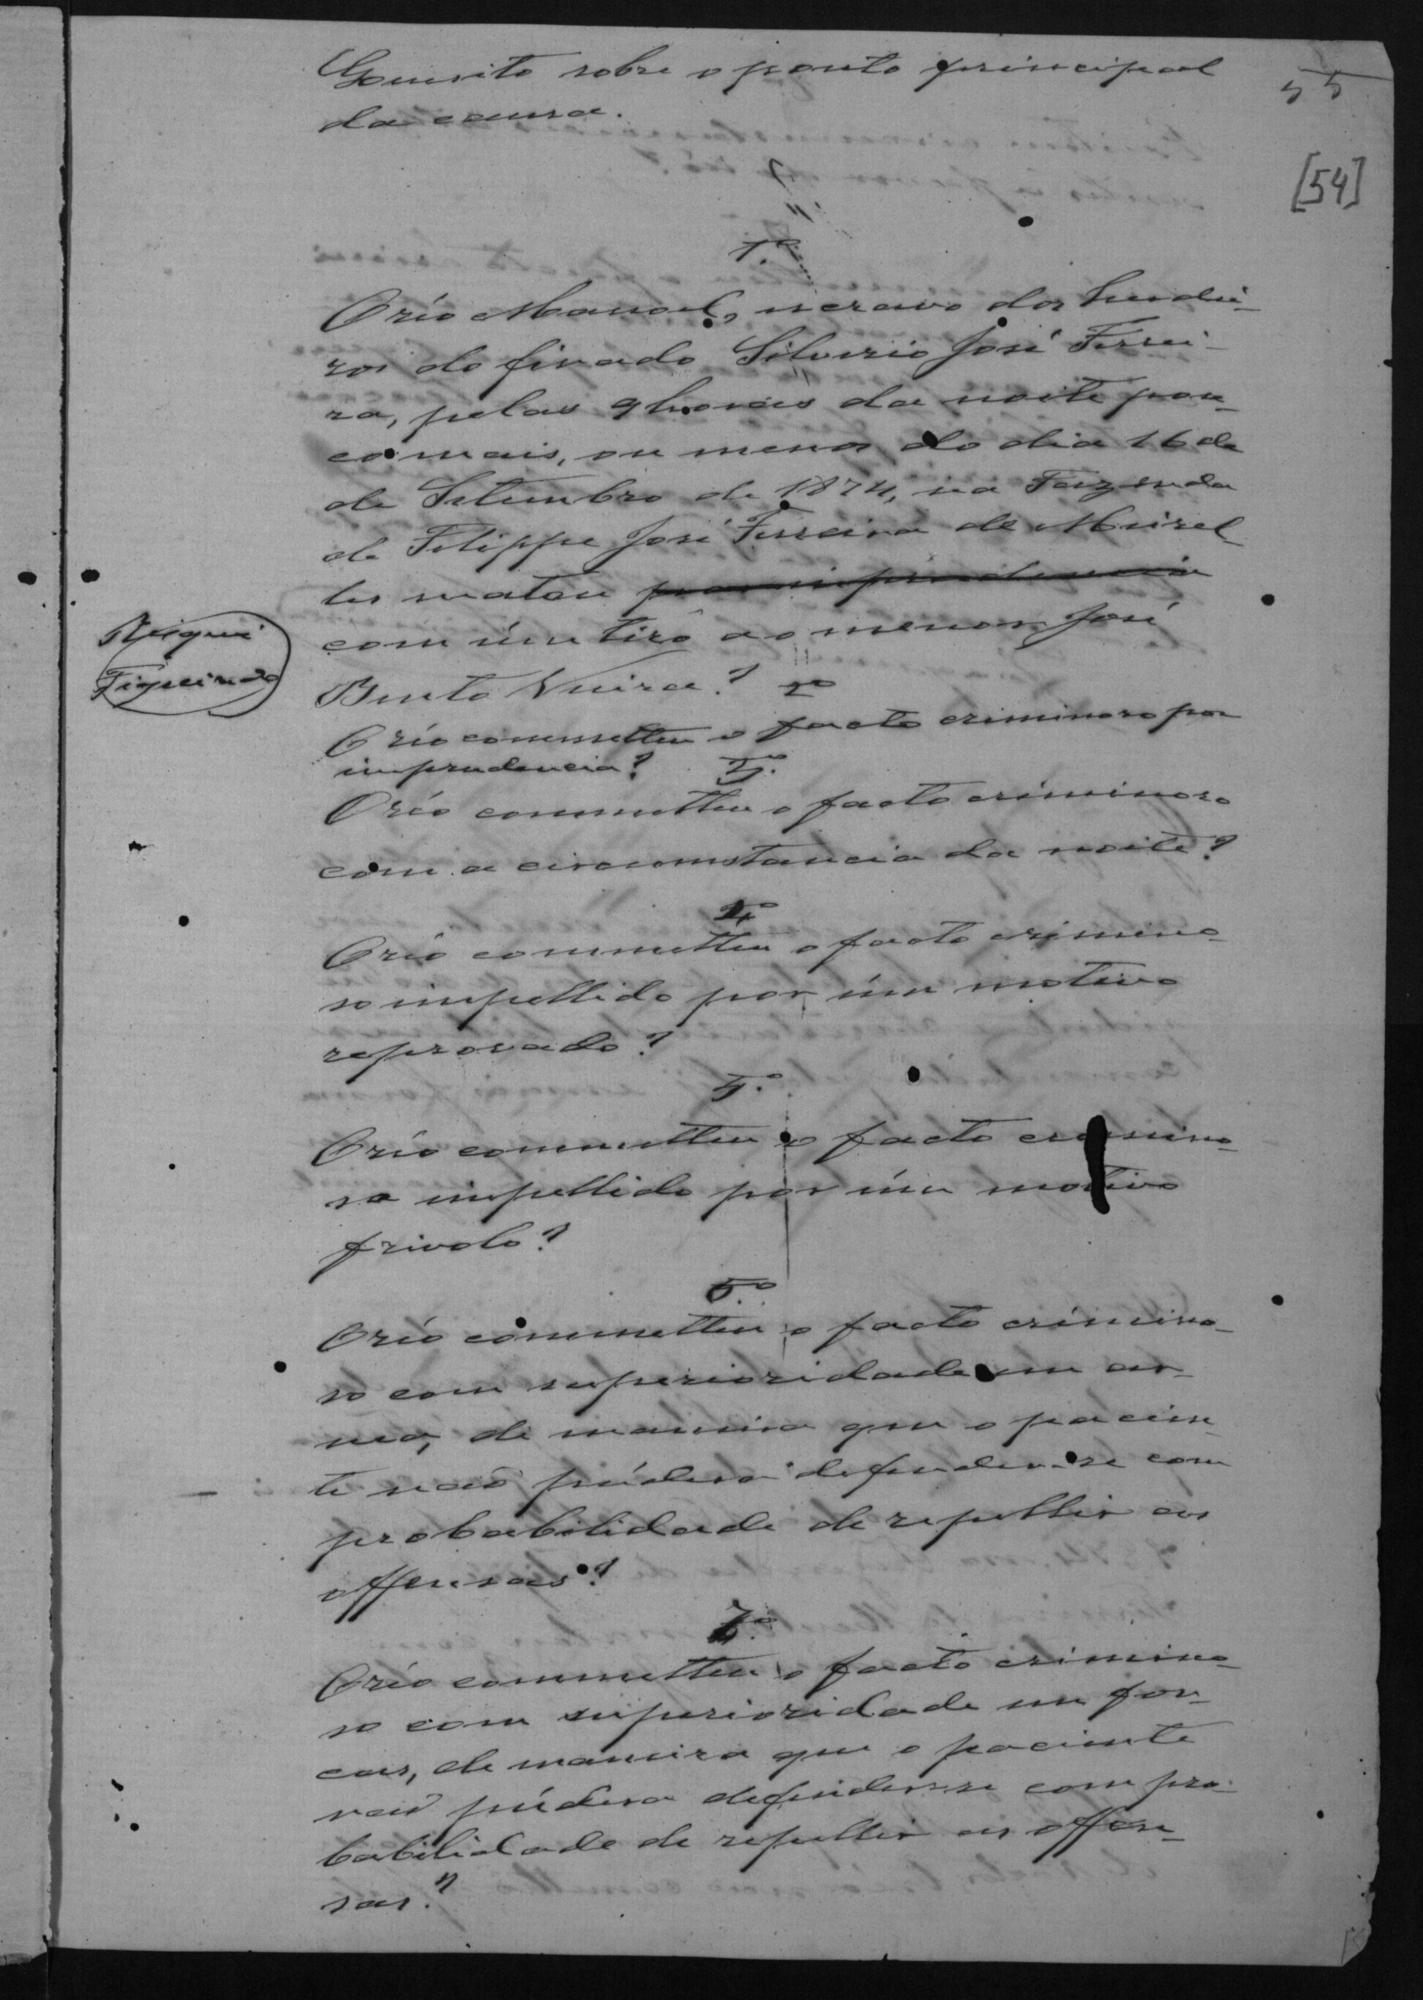 Quesito sobre o ponto principal
da causa.
55
[54]
1.º
O réo Manoel, escravo dos herdei-
ros do finado Silverio José Ferrei-
ra, pelas 9 horas da noite pou-
co mais, ou menos do dia 16 de
de Setembro de 1874, na Fazenda
de Filippe José Ferreira de Meirel-
les matou por imprudencia
com úm tiro ao menor José
Bento Vieira? 2º
Risquei
Figueiredo
O réo commetteu o facto criminoso por
imprudencia? 3.º
O réo commetteu o facto criminoso
com a circumstancia da noite?
4º
O réo commetteu o facto crimino-
so impellido por úm motivo
reprovado?
5.º
O réo commetteu o facto crimino-
so impellido por úm motivo
frivolo?
6.º
O réo commetteu o facto crimino-
so com superioridade em ar-
mas, de maneira que o pacien-
te não púdera defender-se com
probabilidade de repellir as
offensas?
7.º
O réo commetteu o facto crimino-
so com superioridade em for-
cas, de maneira que o paciente
não púdera defender-se com pro-
babilidade de repellir as offen-
sas?